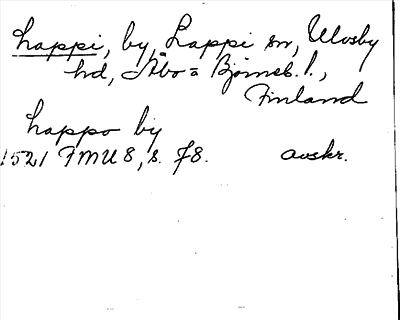 Lappi, by, Lappi sn, Vlvsby
hd, Åbo = Björneb. l.,
Finland
Lappo by
1521 FMU 8, s. 78. avskr.